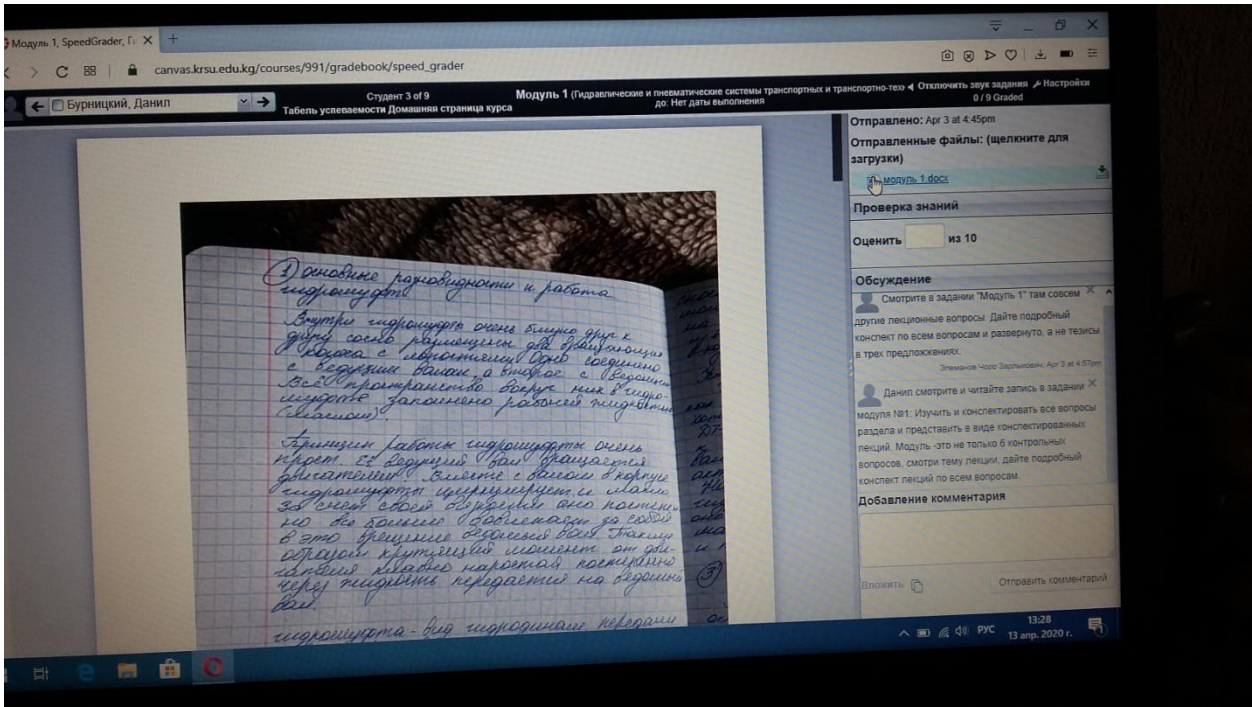 Модуль 1, SpeedGrader, Ги
canvas.krsu.edu.kg/courses/991/gradebook/speed_grader
Бурницкий, Данил
Студент 3 of 9
Табель успеваемости Домашняя страница курса
Модуль 1 (Гидравлические и пневматические системы транспортных и транспортно-техн
до: Нет даты выполнения
Отключить звук задания
Настройки
0 / 9 Graded
1) основные разновидности и работа
гидромуфт
Внутри гидромуфты очень близко друг к
другу соосно размещены два вращающих
колеса с лопастями. Одно соединено
с ведущим валом, а второе с ведомым
Всё пространство вокруг них в гидро-
муфте заполнено рабочей жидкостью
(маслом).
Принцип работы гидромуфты очень
прост. Её ведущий вал вращается
двигателем. Вместе с валом в корпусе
гидромуфты циркулирует и масло
За счет своей оно постепен
но все больше за собой
в это вращение ведомый вал. Таким
образом крутящий момент от дви-
гателя плавно нарастая постепенно
через жидкость передается на ведомый
вал.
гидромуфта - вид гидродинам передачи
3
Отправлено: Apr 3 at 4:45pm
Отправленные файлы: (щелкните для
загрузки)
модуль 1.docx
Проверка знаний
Оценить из 10
Обсуждение
Смотрите в задании "Модуль 1" там совсем
другие лекционные вопросы. Дайте подробный
конспект по всем вопросам и развернуто, а не тезисы
в трех предложениях.
Элеманов Чоро Зарлыкович, Apr 3 at 4:57pm
Данил смотрите и читайте запись в задании
модуля №1: Изучить и конспектировать все вопросы
раздела и представить в виде конспектированных
лекций. Модуль -это не только 6 контрольных
вопросов, смотри тему лекции, дайте подробный
конспект лекций по всем вопросам.
Добавление комментария
Вложить
Отправить комментарий
РУС
13:28
13 апр. 2020 г.